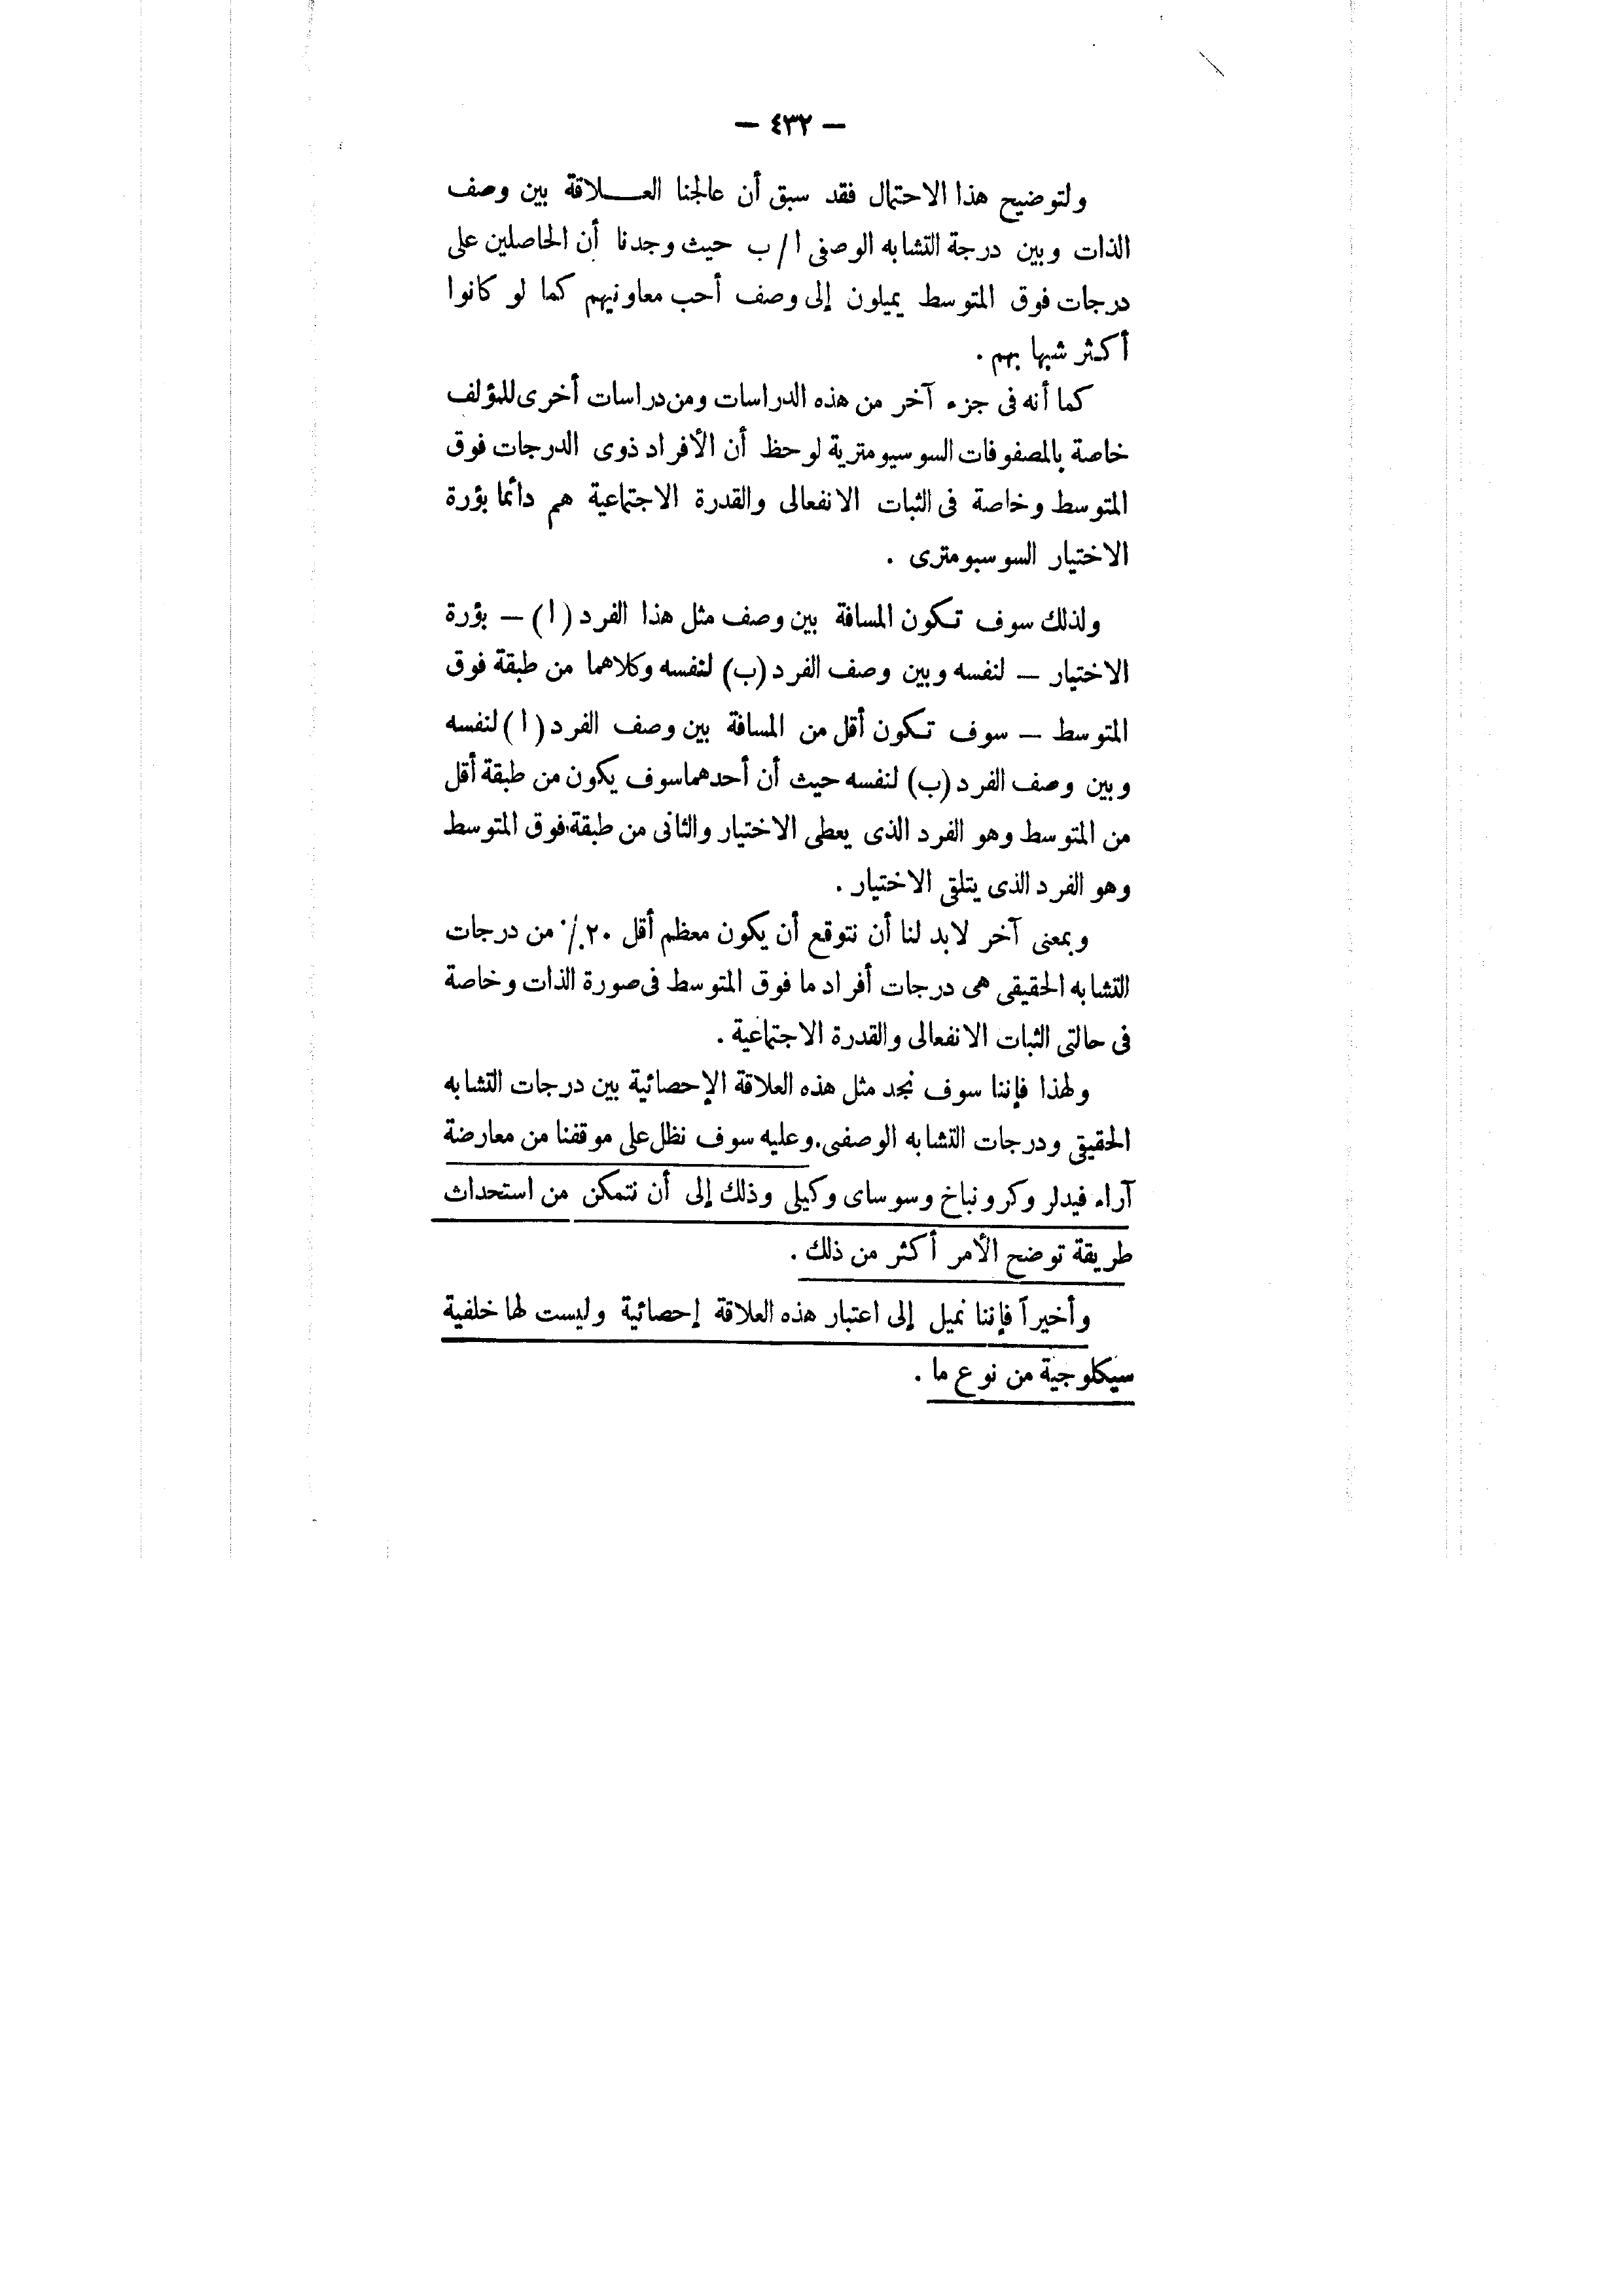 — ٤٣٢ —
ولتوضيح هذا الاحتمال فقد سبق أن عالجنا العــــلاقة بين وصف
الذات وبين درجة التشابه الوصفى ا / ب حيث وجدنا أن الحاصلين على
درجات فوق المتوسط يميلون إلى وصف أحب معاونيهم كما لو كانوا
أكثر شبها بهم .
كما أنه فى جزء آخر من هذه الدراسات ومن دراسات أخرى للمؤلف
خاصة بالمصفوفات السوسيومترية لوحظ أن الأفراد ذوى الدرجات فوق
المتوسط وخاصة فى الثبات الانفعالى والقدرة الاجتماعية هم دائما بؤرة
الاختيار السوسيومترى .
ولذلك سوف تكون المسافة بين وصف مثل هذا الفرد (ا) — بؤرة
الاختيار — لنفسه وبين وصف الفرد (ب) لنفسه وكلاهما من طبقة فوق
المتوسط — سوف تكون أقل من المسافة بين وصف الفرد (ا) لنفسه
وبين وصف الفرد (ب) لنفسه حيث أن أحدهما سوف يكون من طبقة أقل
من المتوسط وهو الفرد الذى يعطى الاختيار والثانى من طبقة فوق المتوسط
وهو الفرد الذى يتلقى الاختيار .
وبمعنى آخر لابد لنا أن نتوقع أن يكون معظم أقل ٢٠٪ من درجات
التشابه الحقيقى هى درجات أفراد ما فوق المتوسط فى صورة الذات وخاصة
فى حالتى الثبات الانفعالى والقدرة الاجتماعية .
ولهذا فإننا سوف نجد مثل هذه العلاقة الإحصائية بين درجات التشابه
الحقيقى ودرجات التشابه الوصفى. وعليه سوف نظل على موقفنا من معارضة
آراء فيدلر وكرونباخ وسوساى وكيلى وذلك إلى أن نتمكن من استحداث
طريقة توضح الأمر أكثر من ذلك .
وأخيراً فإننا نميل إلى اعتبار هذه العلاقة إحصائية وليست لها خلفية
سيكلوجية من نوع ما .